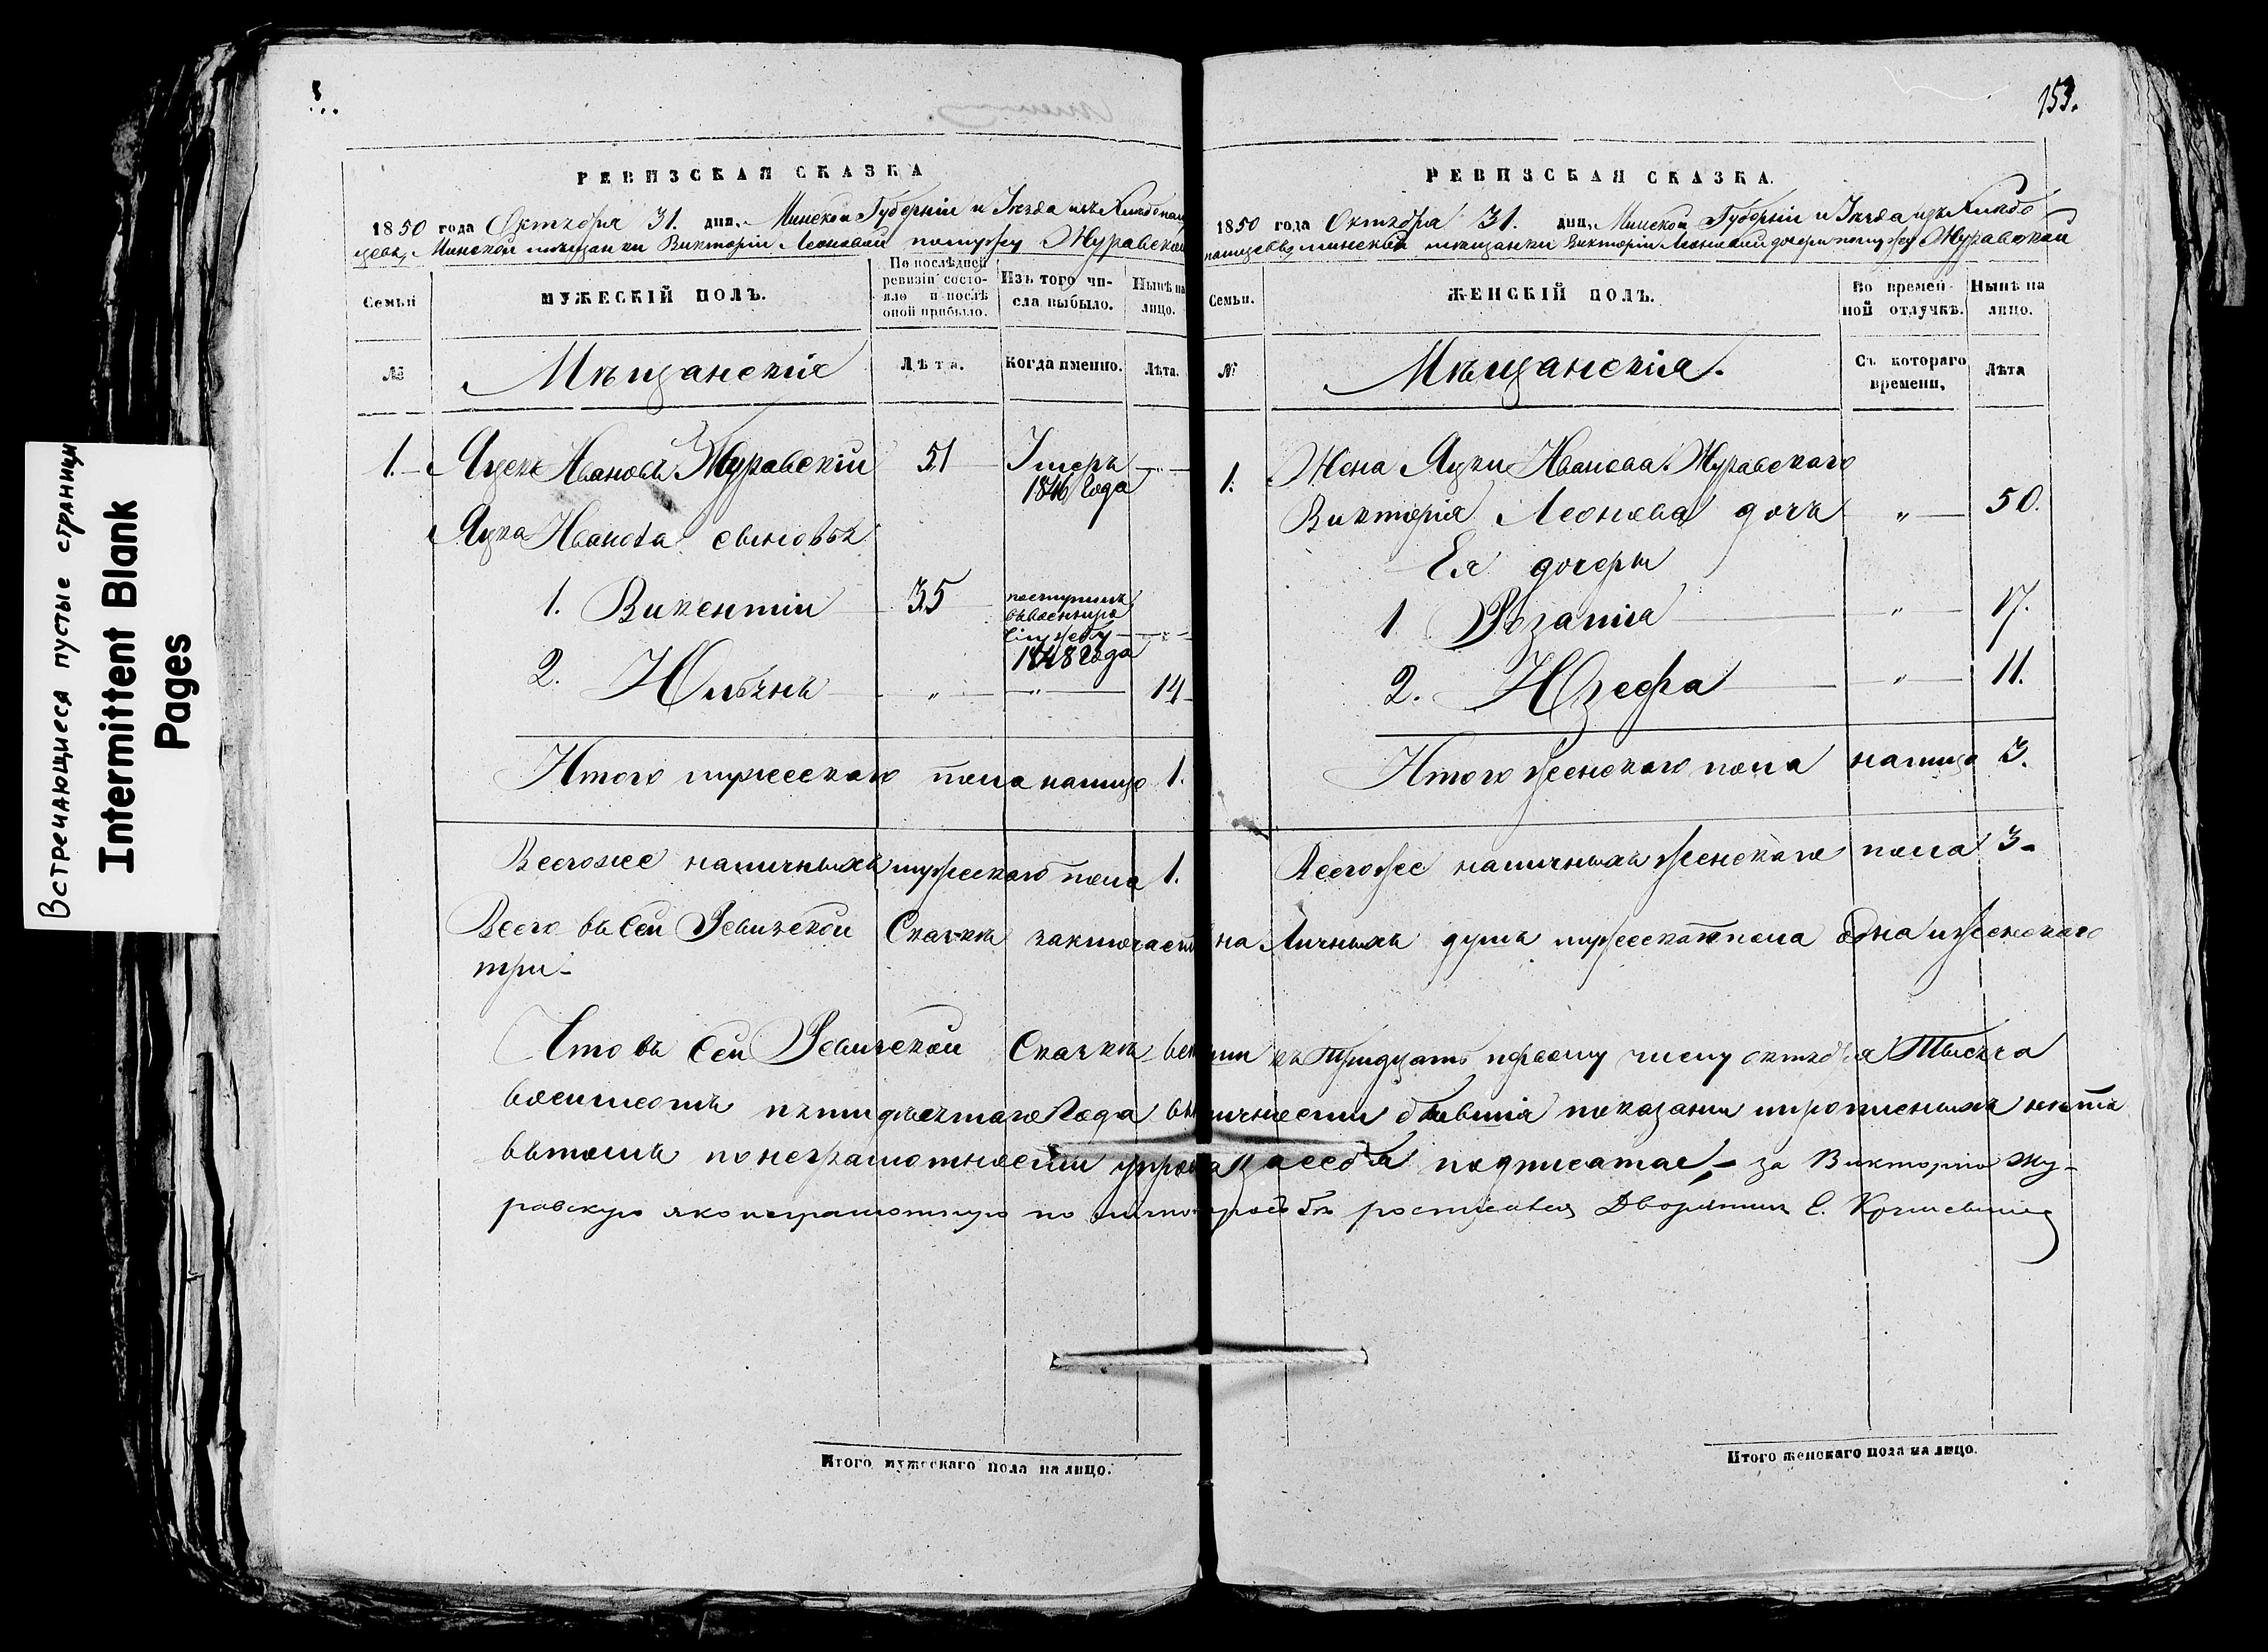 Встречающиеся пустые страницы
Intermittent Blank
Pages
РЕВИЗСКАЯ СКАЗКА
1850 года Октября 31. дня, Минской Губерніи и Уѣзда изъ Хлѣбопаш
цевъ, Минской мѣщанки Викторіи Леоновой по мужу Журавской
Семьи
МУЖЕСКІЙ ПОЛЪ.
По послѣдней
ревизіи состо-
яло и послѣ
оной прибыло.
Изъ того чи-
сла выбыло.
Нынѣ на
лицо.
№
Мѣщанскія
Лѣта.
Когда именно.
Лѣта.
1. Яцекъ Ивановъ Журавскій 51 Умеръ
1846 Года
Яцка Иванова сыновья
1. Викентій 35 поступилъ
въ военную
службу
1848 Года
2. Юльянъ " " 14
Итого мужескаго пола налицо 1.
Всегоже наличныхъ мужескаго пола 1.
153.
РЕВИЗСКАЯ СКАЗКА.
1850 года Октября 31. дня, Минской Губерніи и Уѣзда изъ Хлѣбо
пашцевъ, минской мѣщанки Викторіи Леоновой дочери по мужу Журавской
Семьи.
ЖЕНСКІЙ ПОЛЪ.
Во времен-
ной отлучкѣ.
Нынѣ на
лицо.
№
Мѣщанскія.
Съ котораго
времени,
Лѣта
1. Жена Яцки Иванова Журавскаго
Викторія Леонова дочь " 50.
Ея дочери
1 Розалія " 17.
2. Юзефа " 11.
Итого женскаго пола налицо 3.
Всегоже наличныхъ женскаго пола 3
Всего въ сей Ревизской Сказкѣ заключается наличныхъ душъ мужескаго пола одна и женскаго
три
Что въ сей Ревизской Сказкѣ всѣ къ тридцать первому числу октября Тысяча
восимсотъ пятидесятаго Года въ наличности бывшія показаны и прописныхъ нѣтъ
въ томъ по неграмотности упрошаю за себя подписатся, за Викторію Жу-
равскую яко неграмотную по личной прозьбѣ росписался Дворянинъ С.
Итого мужескаго пола на лицо.
Итого женскаго пола на лицо.